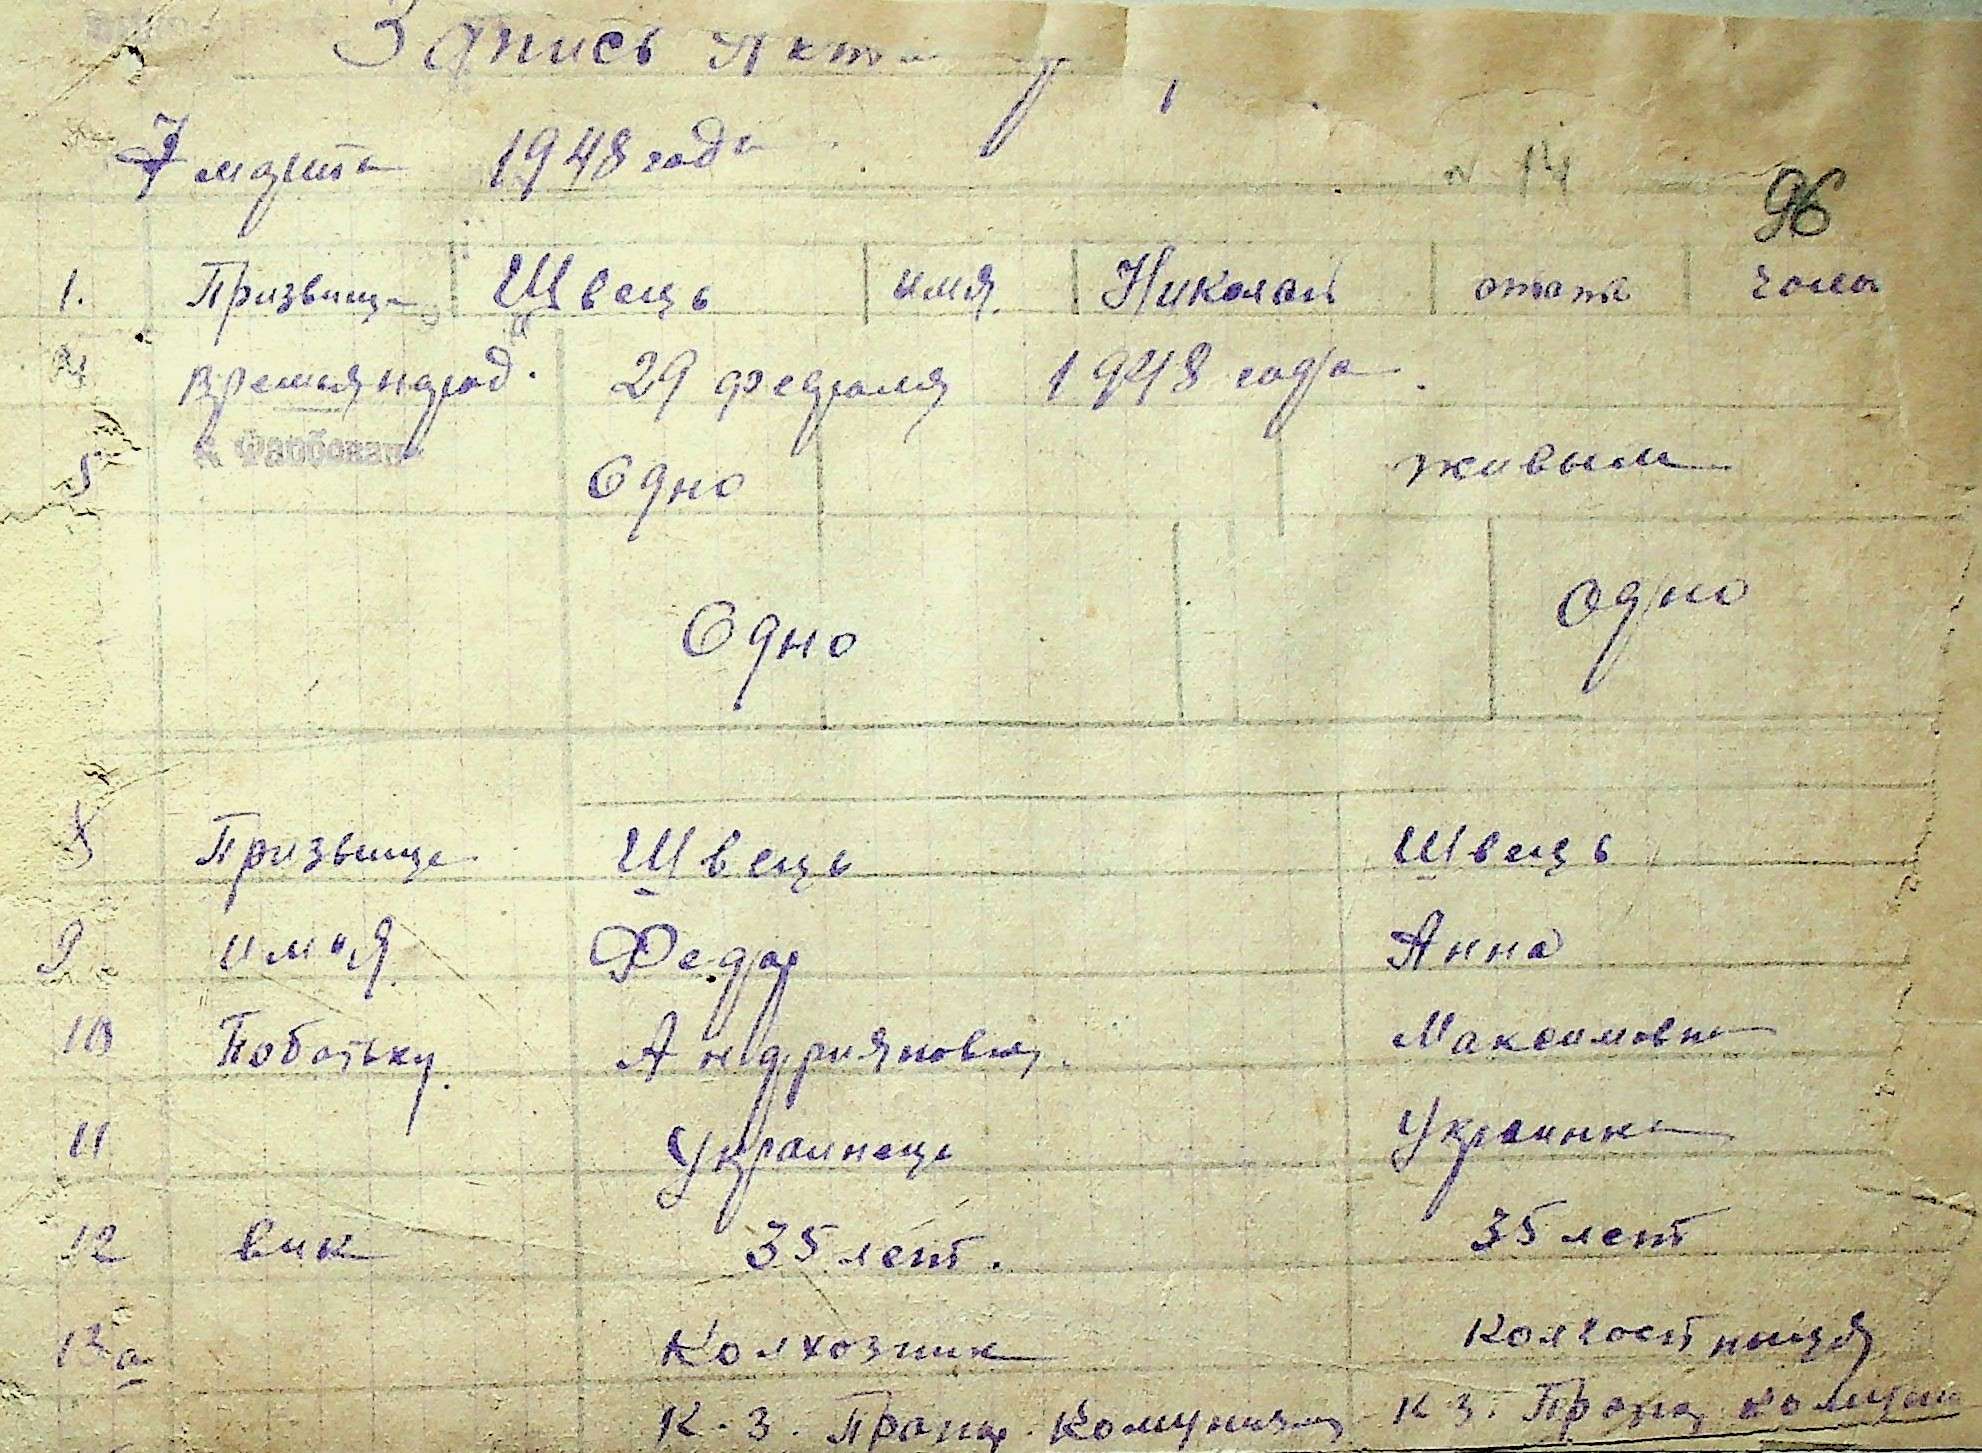 Запись Акта
7 марта 1948 года
N 14
96
1. Призвище Щвець имя Николай стать чолов
Время народ. 29 февраля 1948 года.
5 Одно живым
Одно Одно
8 Призвище Щвець Щвець
9 им"я Федор Анна
10 Побатьку Андриянович. Максимовна
11 Украинець Украинка
12 вик 35 лет. 35 лет
13а Колхозник Колгостныця
К-З. Прапор Комунизму К З. Прапор